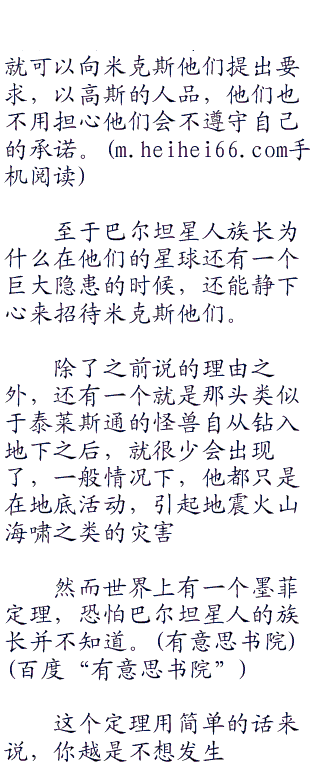 就可以向米克斯他们提出要
求，以高斯的人品，他们也
不用担心他们会不遵守自己
的承诺。(m.heihei66.com手
机阅读)
至于巴尔坦星人族长为
什么在他们的星球还有一个
巨大隐患的时候，还能静下
心来招待米克斯他们。
除了之前说的理由之
外，还有一个就是那头类似
于泰莱斯通的怪兽自从钻入
地下之后，就很少会出现
了，一般情况下，他都只是
在地底活动，引起地震火山
海啸之类的灾害
然而世界上有一个墨菲
定理，恐怕巴尔坦星人的族
长并不知道。(有意思书院)
(百度“有意思书院”)
这个定理用简单的话来
说，你越是不想发生